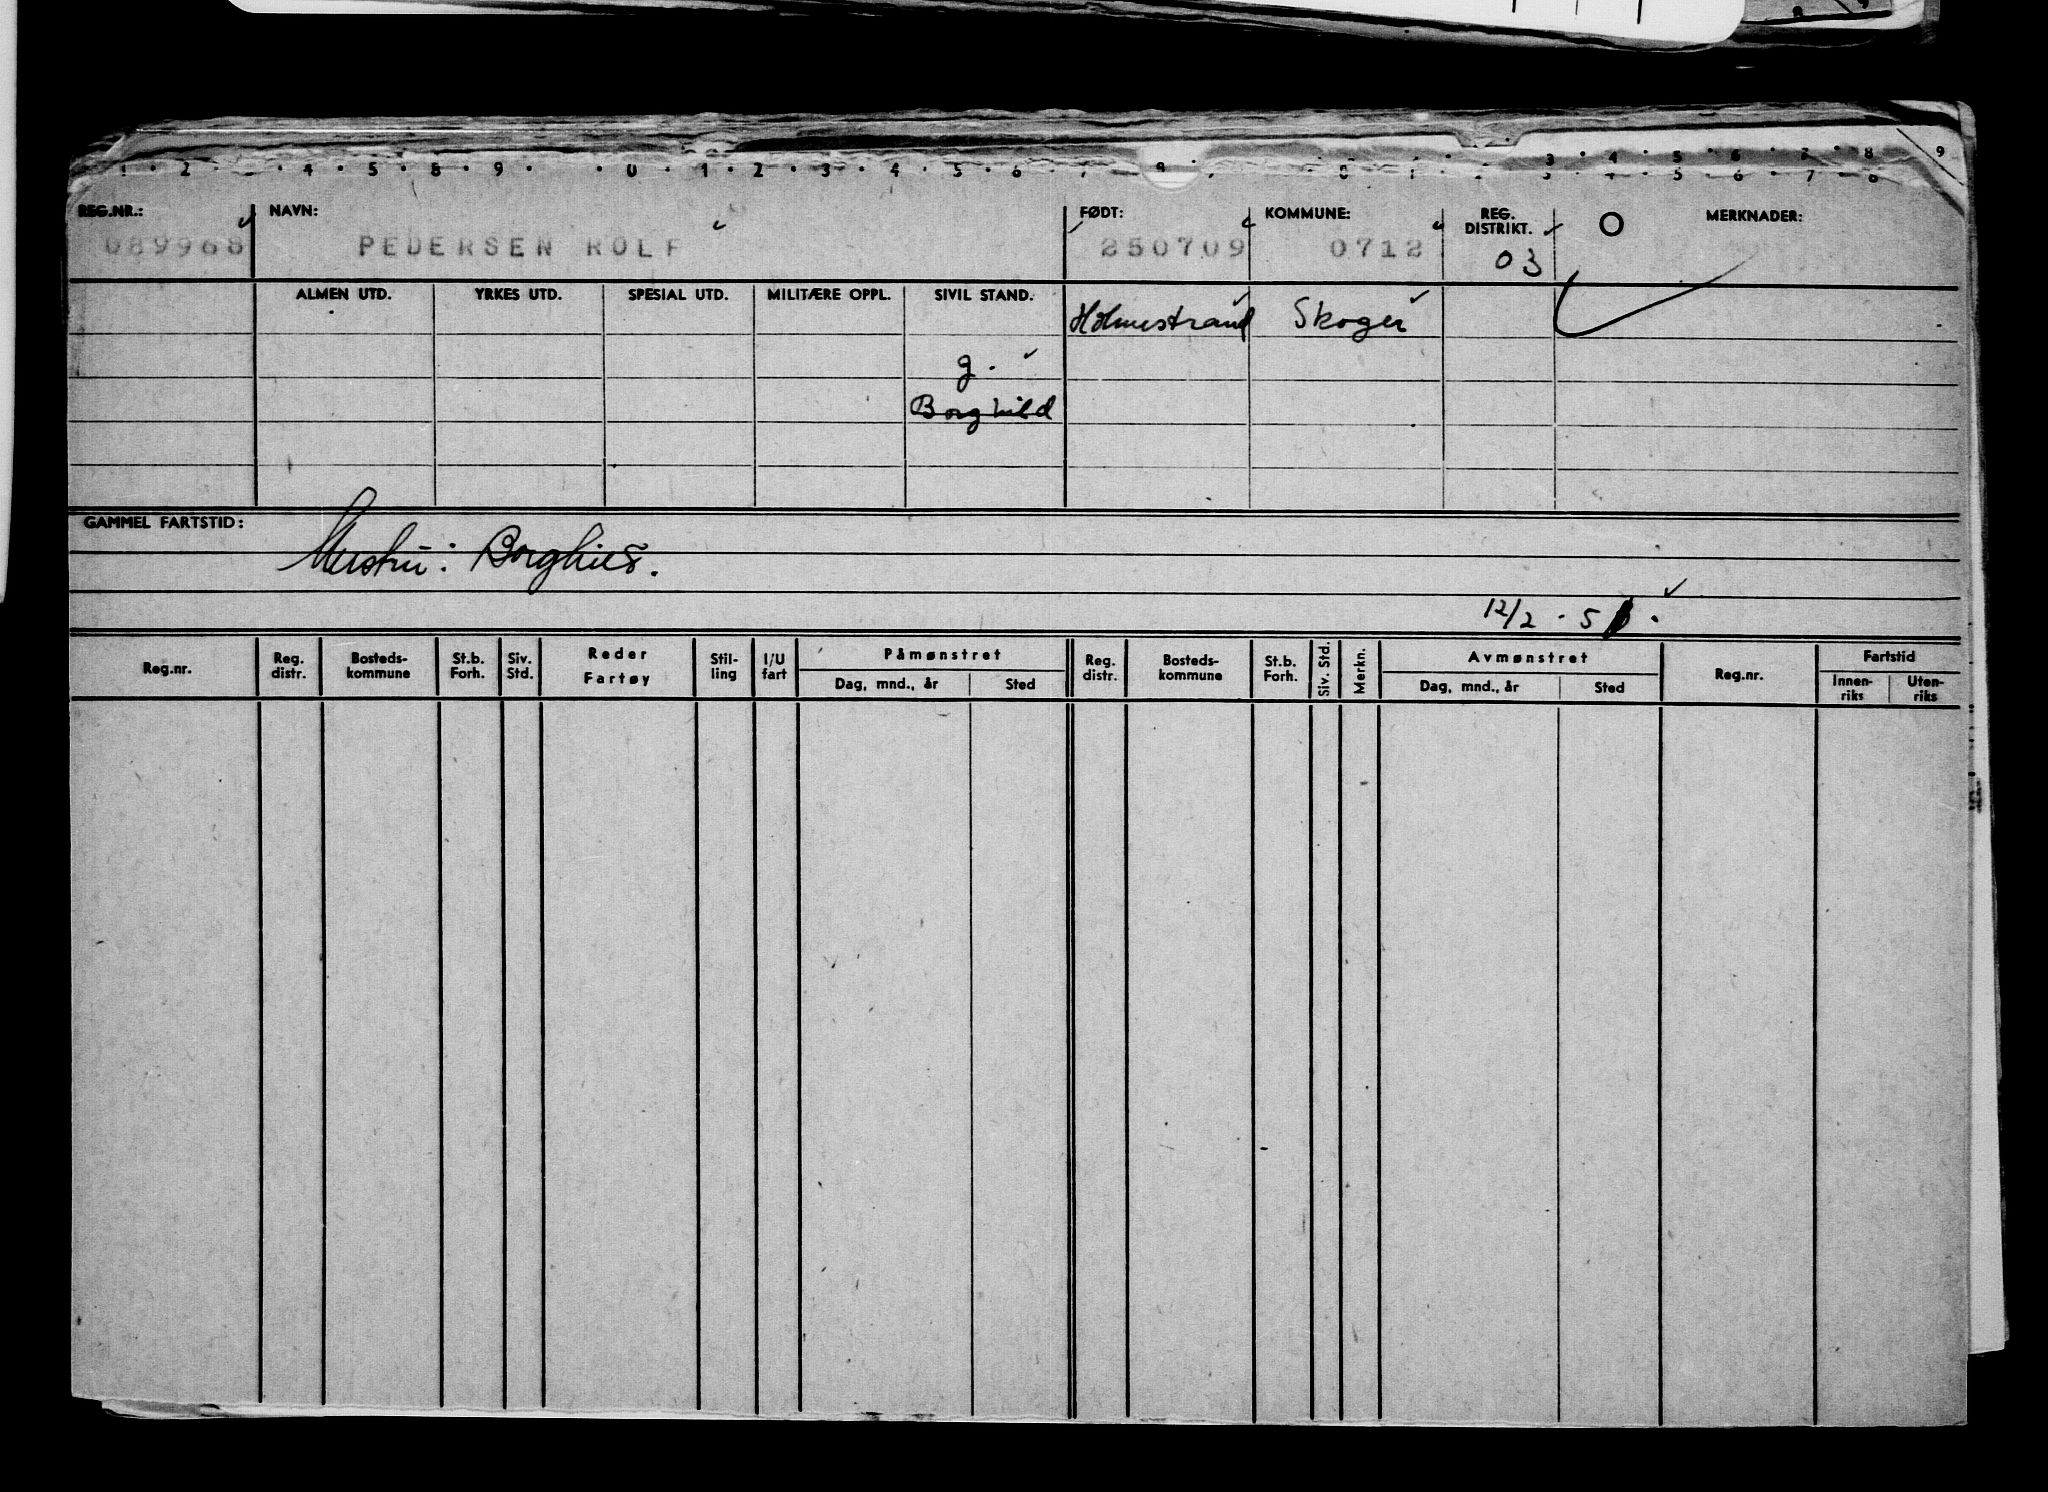 1 · 2 · 4 · 5 · 8 · 9 · 0 · 1 · 2 · 3 · 4 · 5 · 6
REG.NR.: NAVN: FØDT: KOMMUNE: REG. DISTRIKT. MERKNADER:
089968 PEDERSEN ROLF 250709 0712 03
ALMEN UTD. YRKES UTD. SPESIAL UTD. MILITÆRE OPPL. SIVIL STAND.
Holmestrand Skoger
g.
Borghild
GAMMEL FARTSTID:
Hustru: Borghild.
12/2 - 5
Reg.nr. Reg. distr. Bosteds- kommune St.b. Forh. Siv. Std. Reder Fartøy Stil- ling I/U fart Påmønstret Reg. distr. Bosteds- kommune St.b. Forh. Siv. Std. Merkn. Avmønstret Reg.nr. Fartstid
Dag, mnd., år Sted Dag, mnd., år Sted Innen- riks Uten- riks